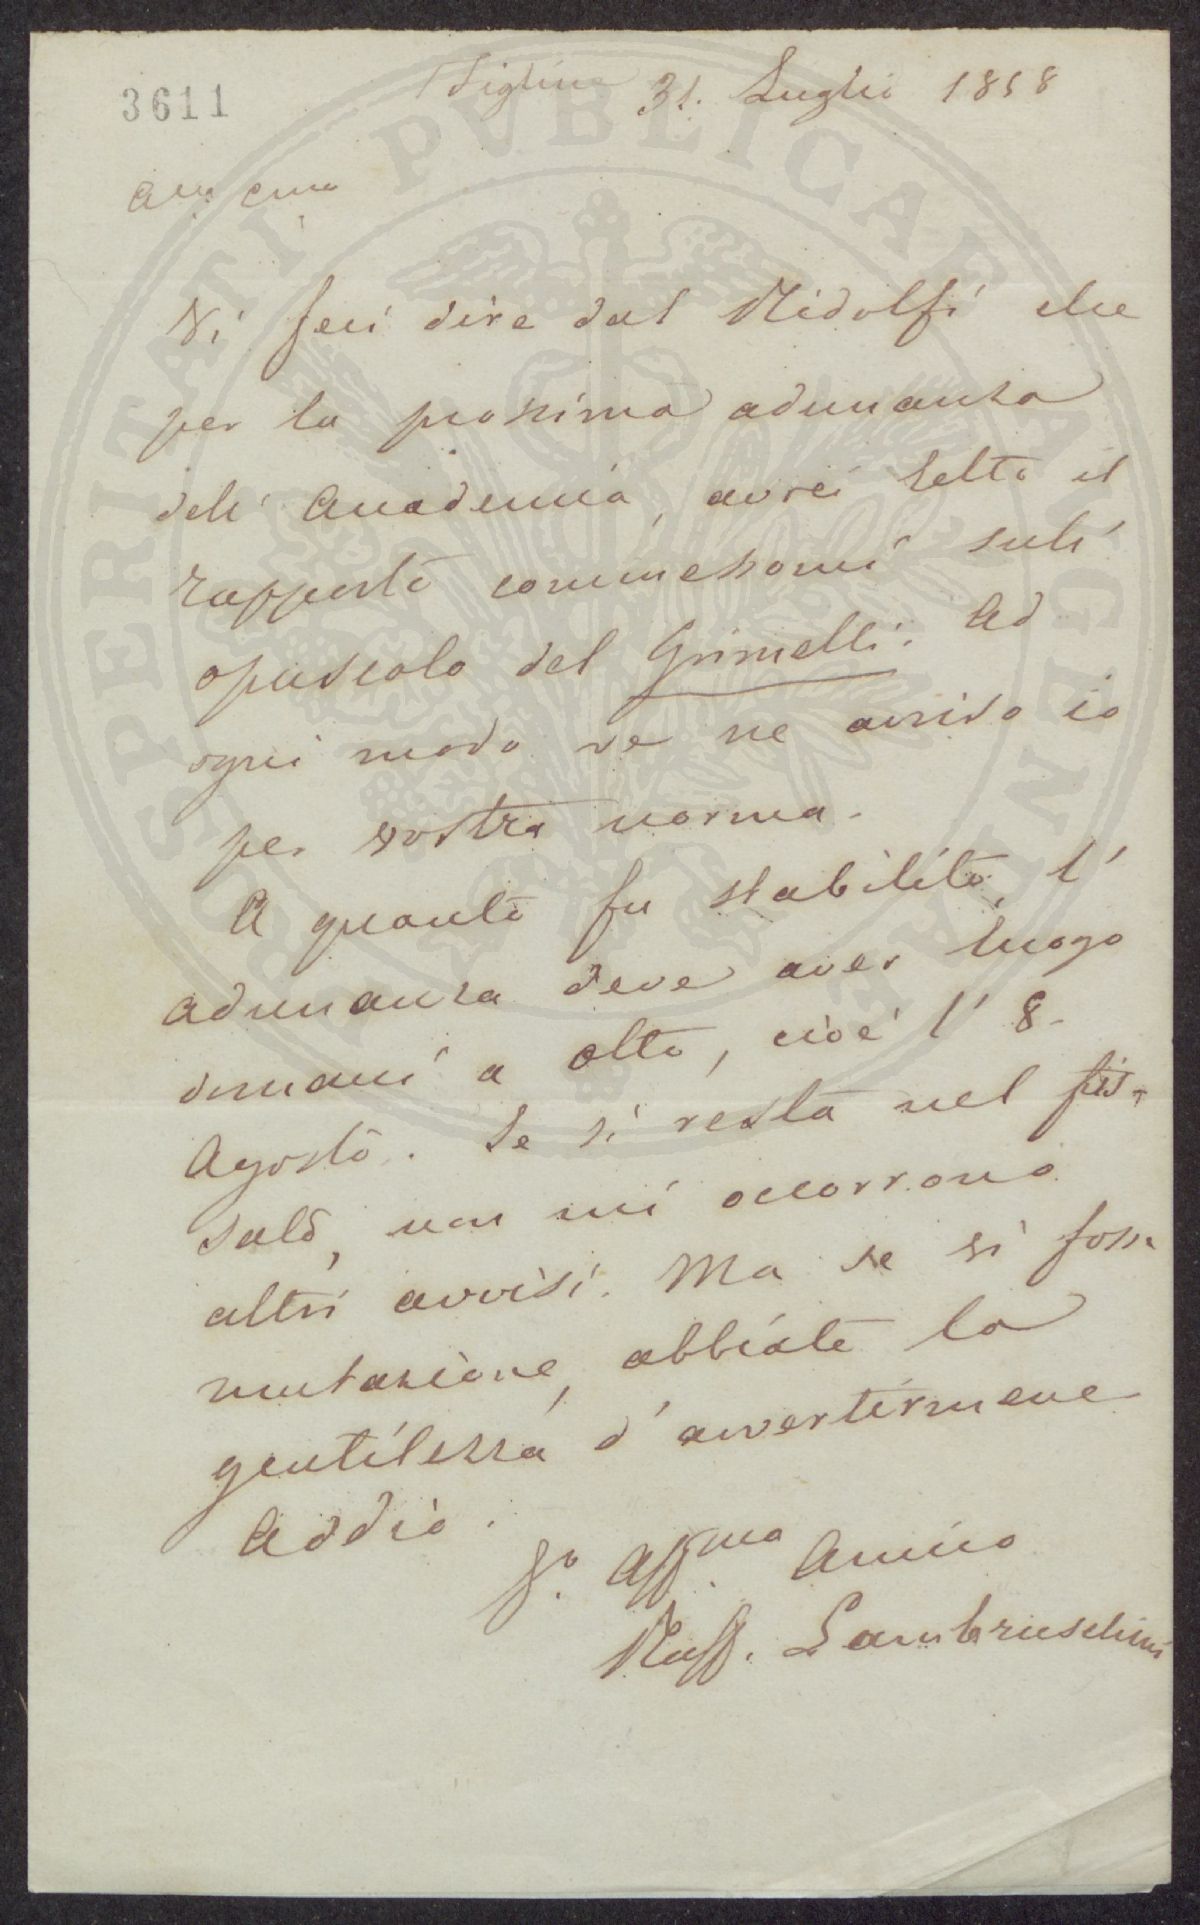 3611
Figline 31. Luglio 1858
Amo Cmo
Vi feci dire dal Ridolfi che
per la prossima adunanza
dell' Accademia, avrei letto il
rapporto commessomi sull'
opuscolo del Grimelli. Ad
ogni modo ve ne avviso io
per vostra norma.
A quanto fu stabilito, l'
adunanza deve aver luogo
domani a otto, cioè l' 8.
Agosto. Se si resta nel fis-
sato, non mi occorrono
altri avvisi. Ma se vi fosse
mutazione, abbiate la
gentilezza d' avvertirmene
Addio.
Vo. Affmo Amico
Raff. Lambruschini
PROSPERITATI PVBLICAE AVGENDAE